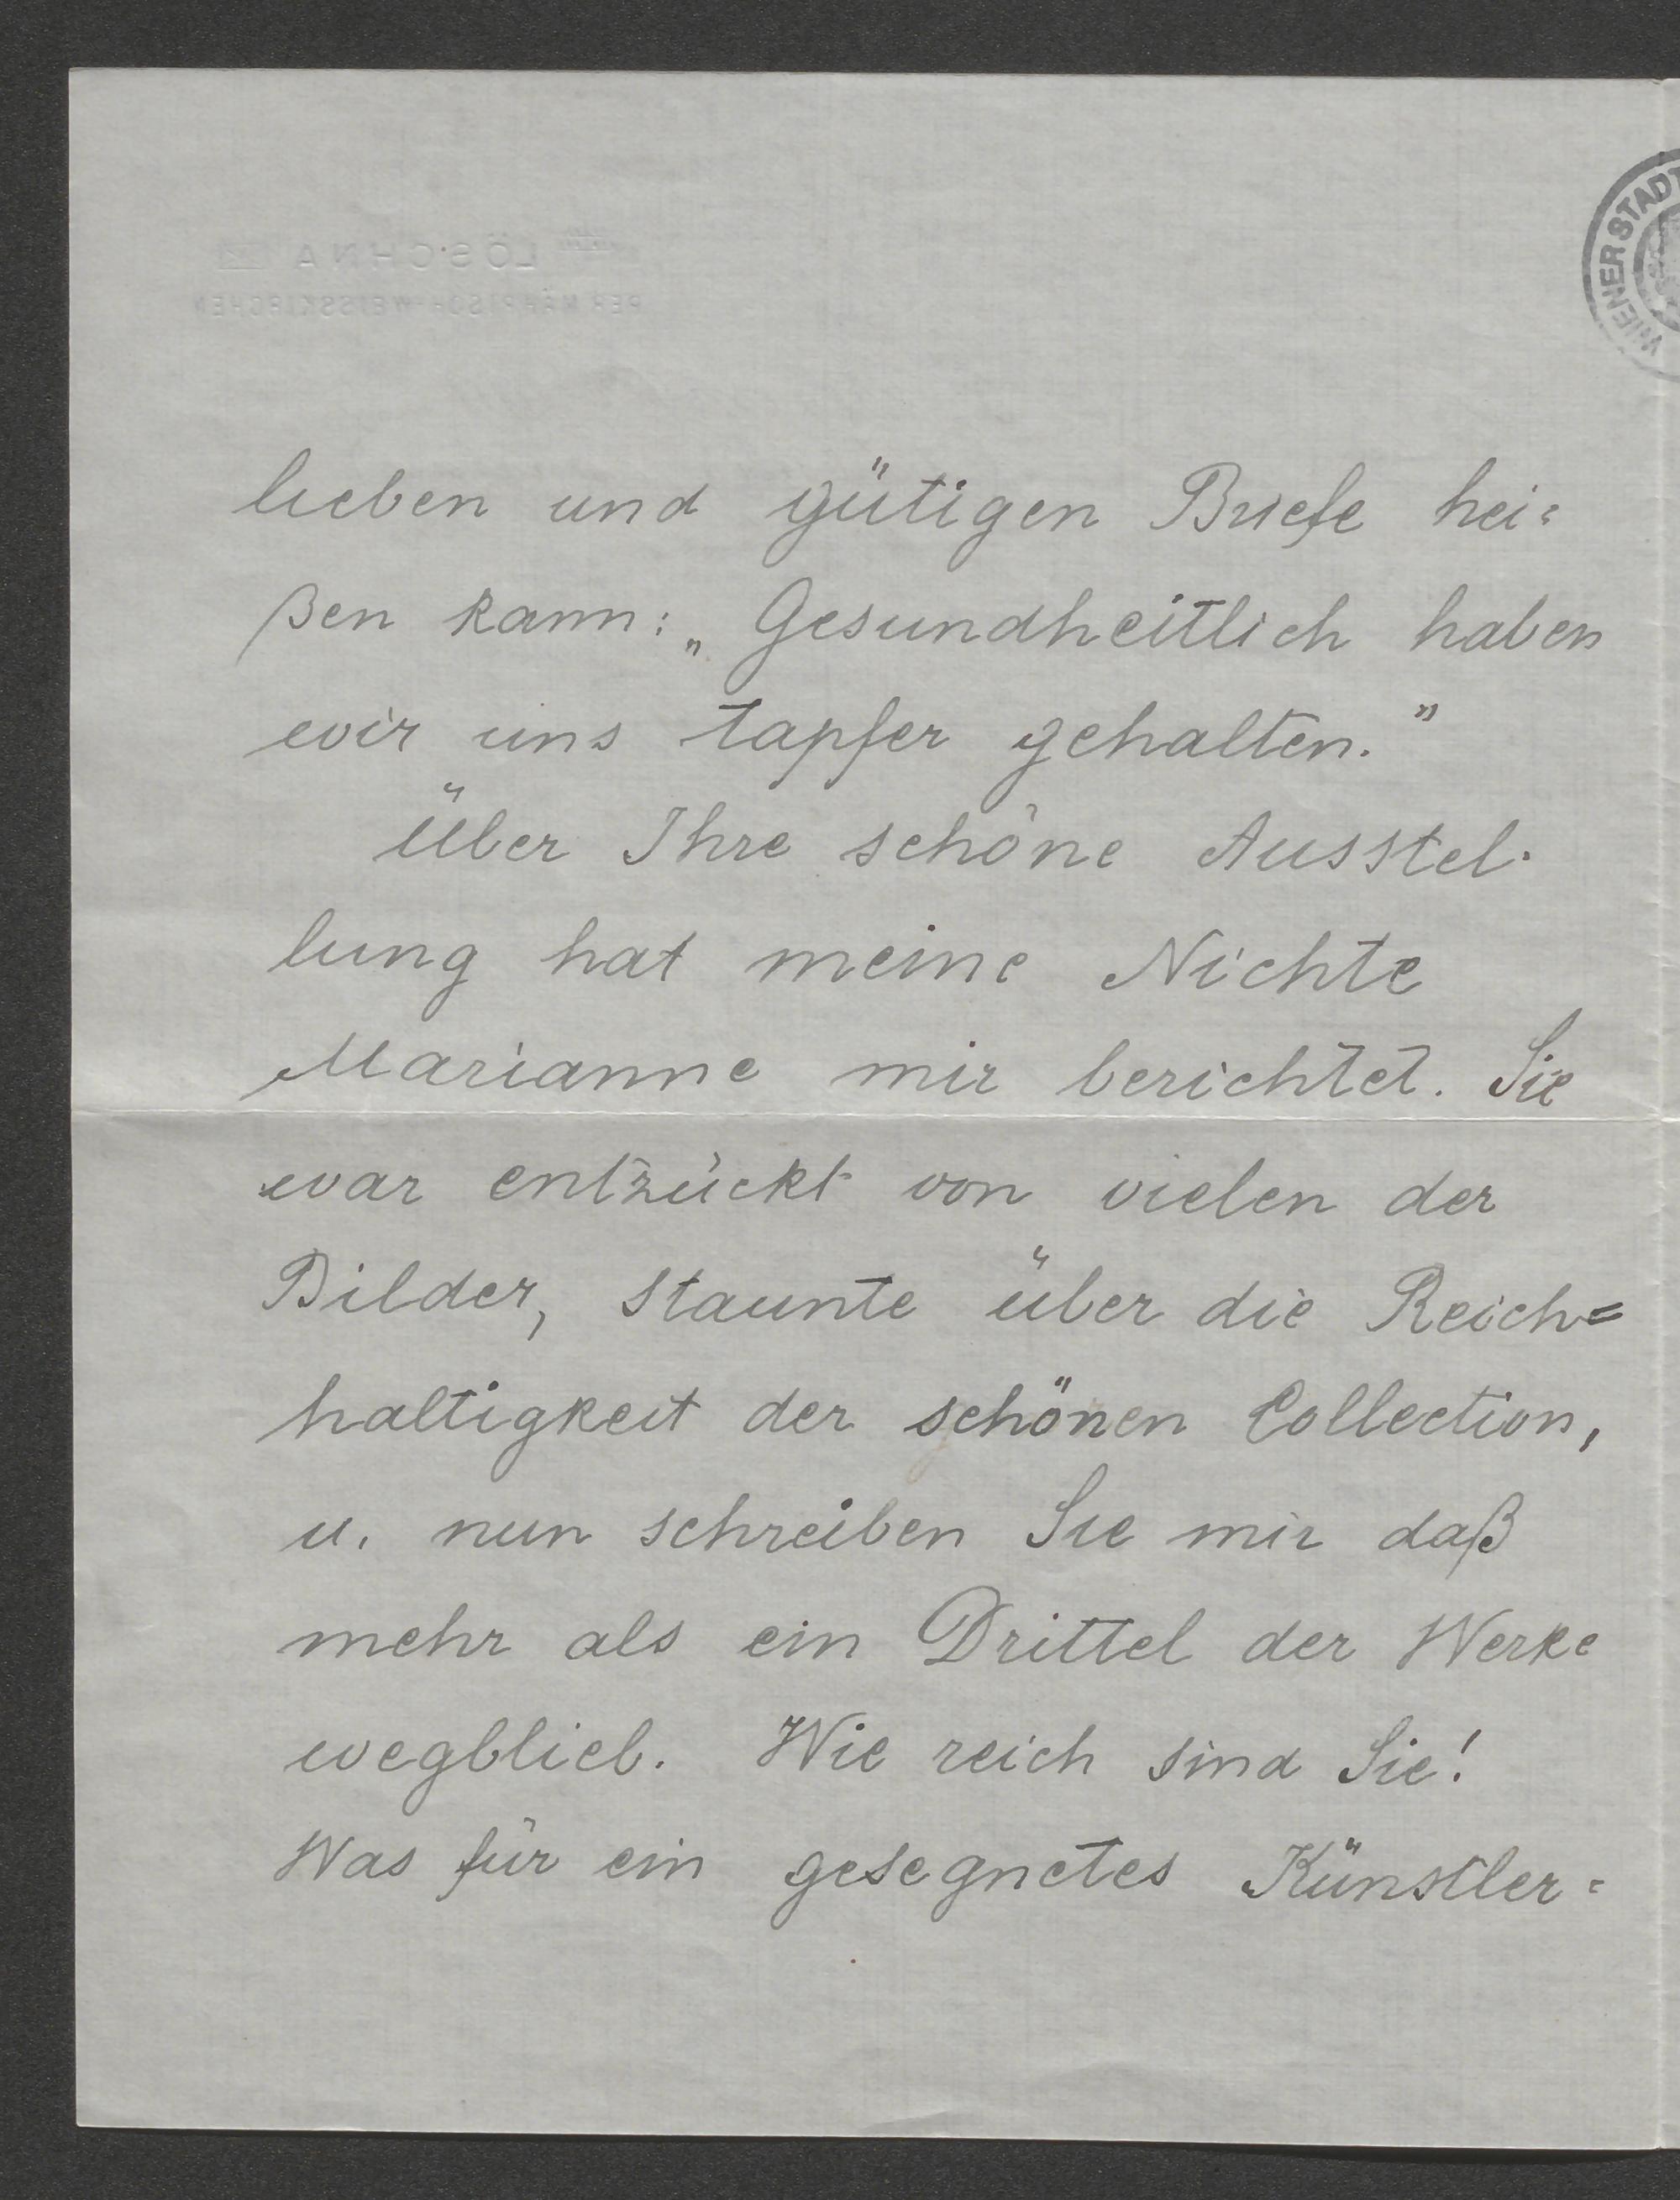 LÖSCHNA
PER MÄHRISCH-WEISSKIRCHEN
WIENER STADT
lieben und gütigen Briefe hei=
ßen kann: „Gesundheitlich haben
wir uns tapfer gehalten."
Über Ihre schöne Ausstel-
lung hat meine Nichte
Marianne mir berichtet. Sie
war entzückt von vielen der
Bilder, staunte über die Reich=
haltigkeit der schönen Collection,
u. nun schreiben Sie mir daß
mehr als ein Drittel der Werke
wegblieb. Wie reich sind Sie!
Was für ein gesegnetes Künstler=